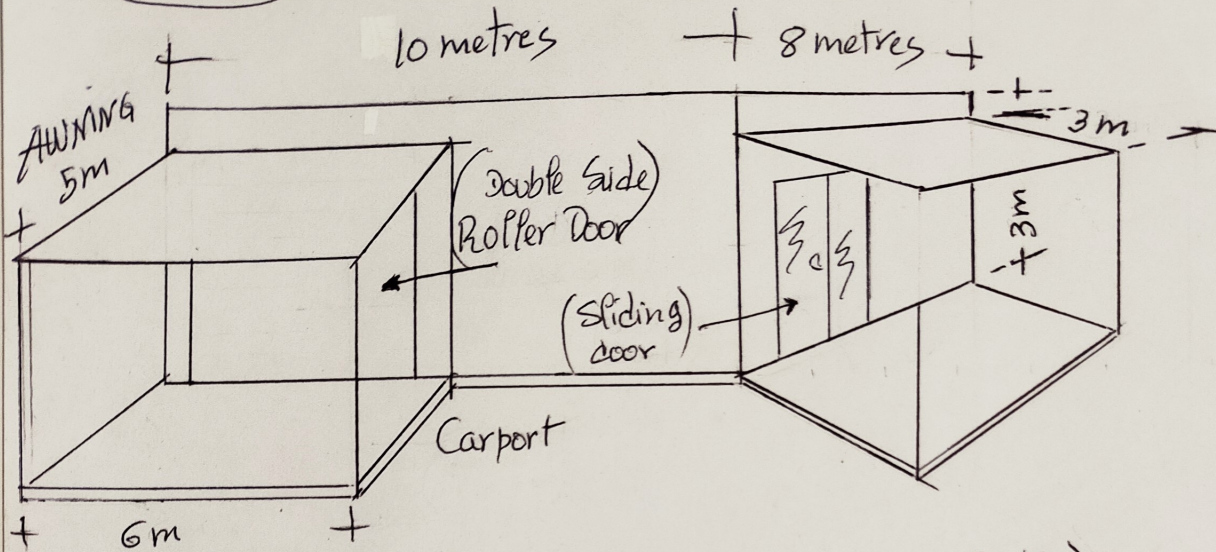 10 metres
8 metres
AWNING
5m
3m
(Double Side)
Roller Door
3m
(Sliding)
door
Carport
6m